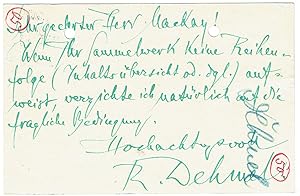 Sehr geehrter Herr Mackay!
Wenn Ihr Sammelwerk keine Reihen-
folge (Inhaltsübersicht od. dgl.) auf-
weist, verzichte ich natürlich auf die
fragliche Bedingung.
Hochachtungsvoll
R. Dehmel